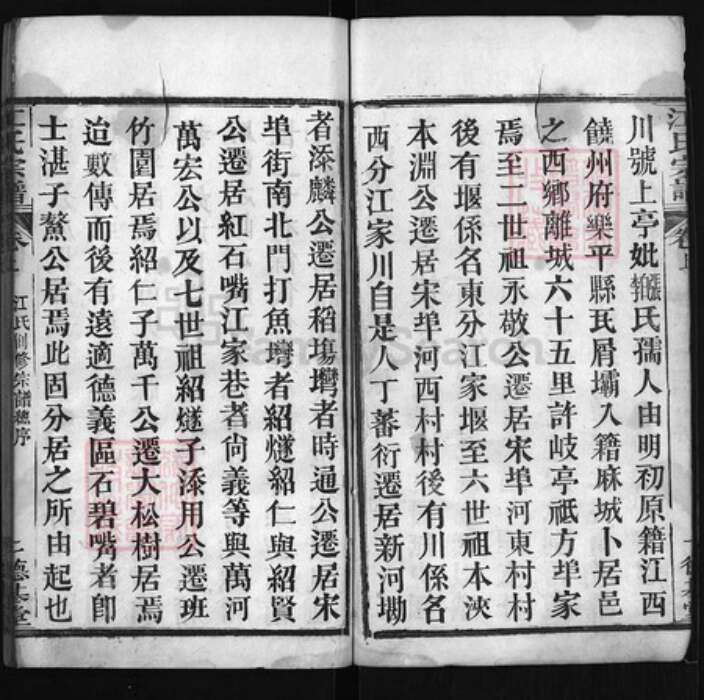 川號上亭妣張韓氏孺人由明初原籍江西
饒州府樂平縣瓦屑壩入籍麻城卜居邑
之西鄉離城六十五里許岐亭祗方埠家
焉至二世祖永敬公遷居宋埠河東村村
後有堰係名東分江家堰至六世祖本浹
本淵公遷居宋埠河西村村後有川係名
西分江家川自是人丁蕃衍遷居新河坳
者添麟公遷居稻塲壪者時通公遷居宋
埠街南北門打魚壪者紹燧紹仁與紹賢
公遷居紅石嘴江家巷者尙義等與萬河
萬宏公以及七世祖紹燧子添用公遷班
竹園居焉紹仁子萬千公遷大松樹居焉
迨數傳而後有遠適德義區石碧嘴者卽
士湛子鰲公居焉此固分居之所由起也
江氏宗譜
江氏創修宗譜總序
德本堂